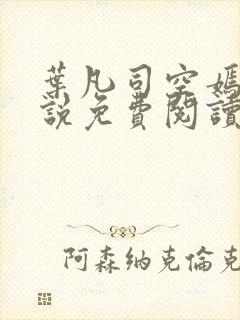 葉凡司空嫣
說免費閱讀
阿森纳克倫克